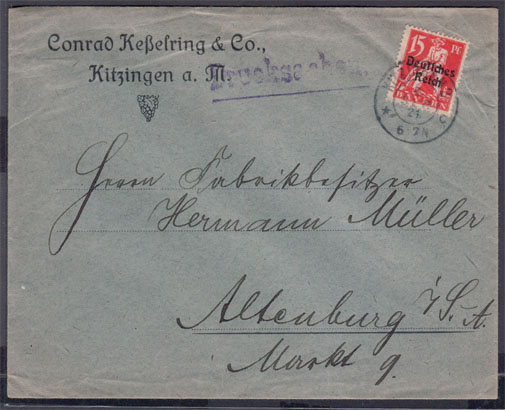 Conrad Keßelring & Co.,
Kitzingen a. M.
Drucksache.
15 Pf
Deutsches
Reich
BAYERN
21
6-7 N
C
Herrn Fabrikbesitzer
Hermann Müller
Altenburg i/S. A.
Markt 9.